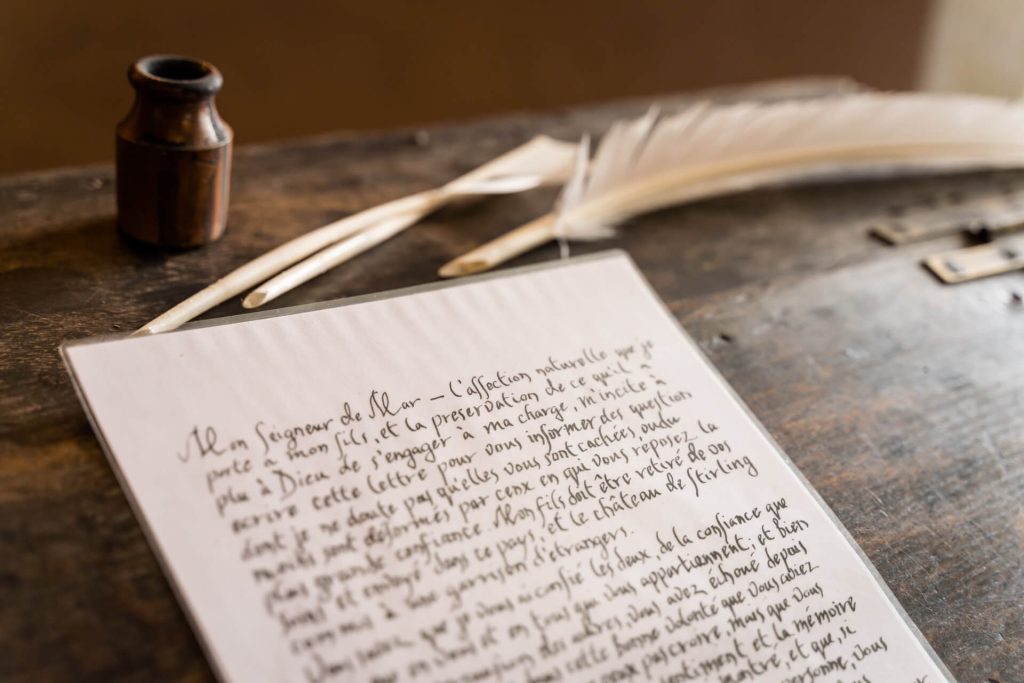 Mon Seigneur de Mar – L'affection naturelle que je
porte à mon fils, et la preservation de ce qu'il a
plu à Dieu de s'engager à ma charge, m'incite à
écrire cette lettre pour vous informer des question
dont je ne doute pas qu'elles vous sont cachées, ou du
moins sont déformés par ceux en qui vous reposez la
plus grande confiance. Mon fils doit être retiré de vos
soins et envoyé dans ce pays, et le château de Stirling
commis à une garnison d'étrangers.
Vous savez, que je vous ai confié les deux, de la confiance que
en vous et en tous que vous appartiennent, et bien
des autres, vous avez échoué depuis
cette bonne volonté que vous aviez
veux pas croire, mais que vous
sentiment et la mémoire
montré, et que, si
personne, vous